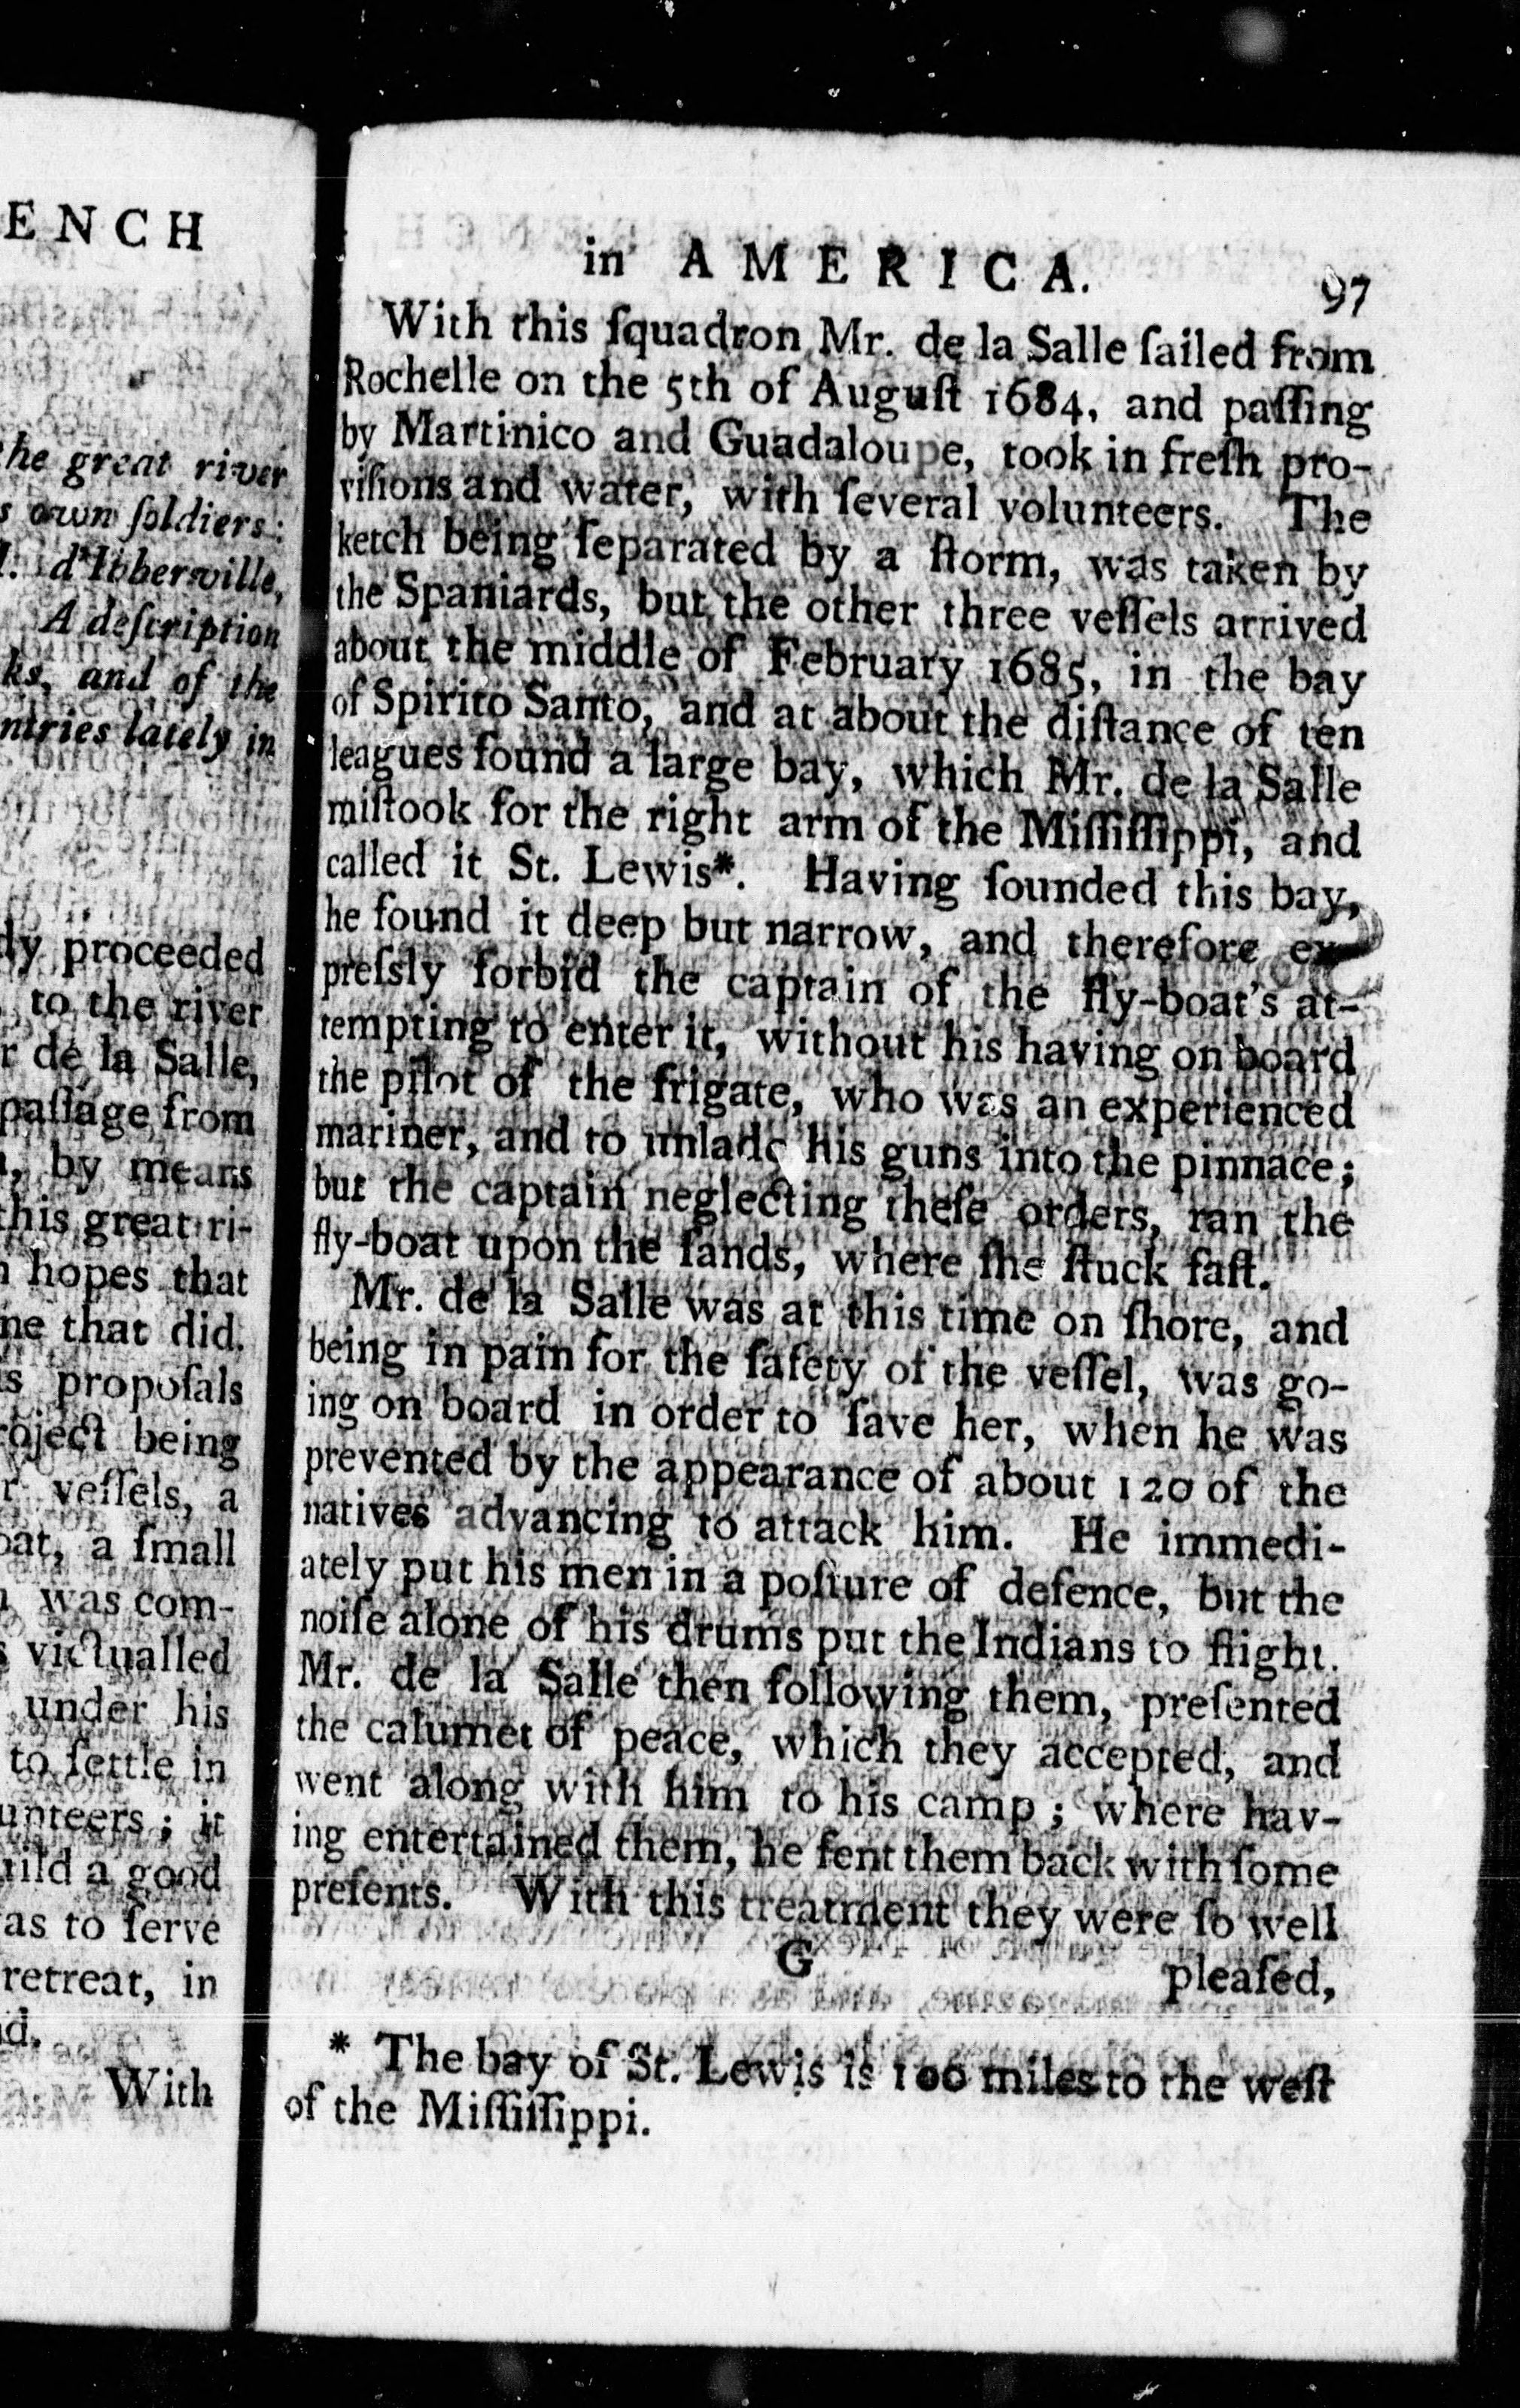 ENCH
he great river
s own ſoldiers:
d'Ibberville,
A deſcription
ks, and of the
ntries lately in
ly proceeded
to the river
r de la Salle,
paſſage from
, by means
this great ri-
hopes that
me that did.
s propoſals
roject being
r veſſels, a
oat, a ſmall
was com-
s victualled
under his
to ſettle in
unteers; it
uild a good
as to ſerve
retreat, in
d.
With
in AMERICA. 97
With this ſquadron Mr. de la Salle ſailed from
Rochelle on the 5th of Auguſt 1684, and paſſing
by Martinico and Guadaloupe, took in freſh pro-
viſions and water, with ſeveral volunteers. The
ketch being ſeparated by a ſtorm, was taken by
the Spaniards, but the other three veſſels arrived
about the middle of February 1685, in the bay
of Spirito Santo, and at about the diſtance of ten
leagues found a large bay, which Mr. de la Salle
miſtook for the right arm of the Miſſiſſippi, and
called it St. Lewis*. Having ſounded this bay,
he found it deep but narrow, and therefore ex-
preſsly forbid the captain of the fly-boat's at-
tempting to enter it, without his having on board
the pilot of the frigate, who was an experienced
mariner, and to unlade his guns into the pinnace;
but the captain neglecting theſe orders, ran the
fly-boat upon the ſands, where ſhe ſtuck faſt.
Mr. de la Salle was at this time on ſhore, and
being in pain for the ſafety of the veſſel, was go-
ing on board in order to ſave her, when he was
prevented by the appearance of about 120 of the
natives advancing to attack him. He immedi-
ately put his men in a poſture of defence, but the
noiſe alone of his drums put the Indians to flight.
Mr. de la Salle then following them, preſented
the calumet of peace, which they accepted, and
went along with him to his camp; where hav-
ing entertained them, he ſent them back with ſome
preſents. With this treatment they were ſo well
G pleaſed,
* The bay of St. Lewis is 100 miles to the weſt
of the Miſſiſſippi.